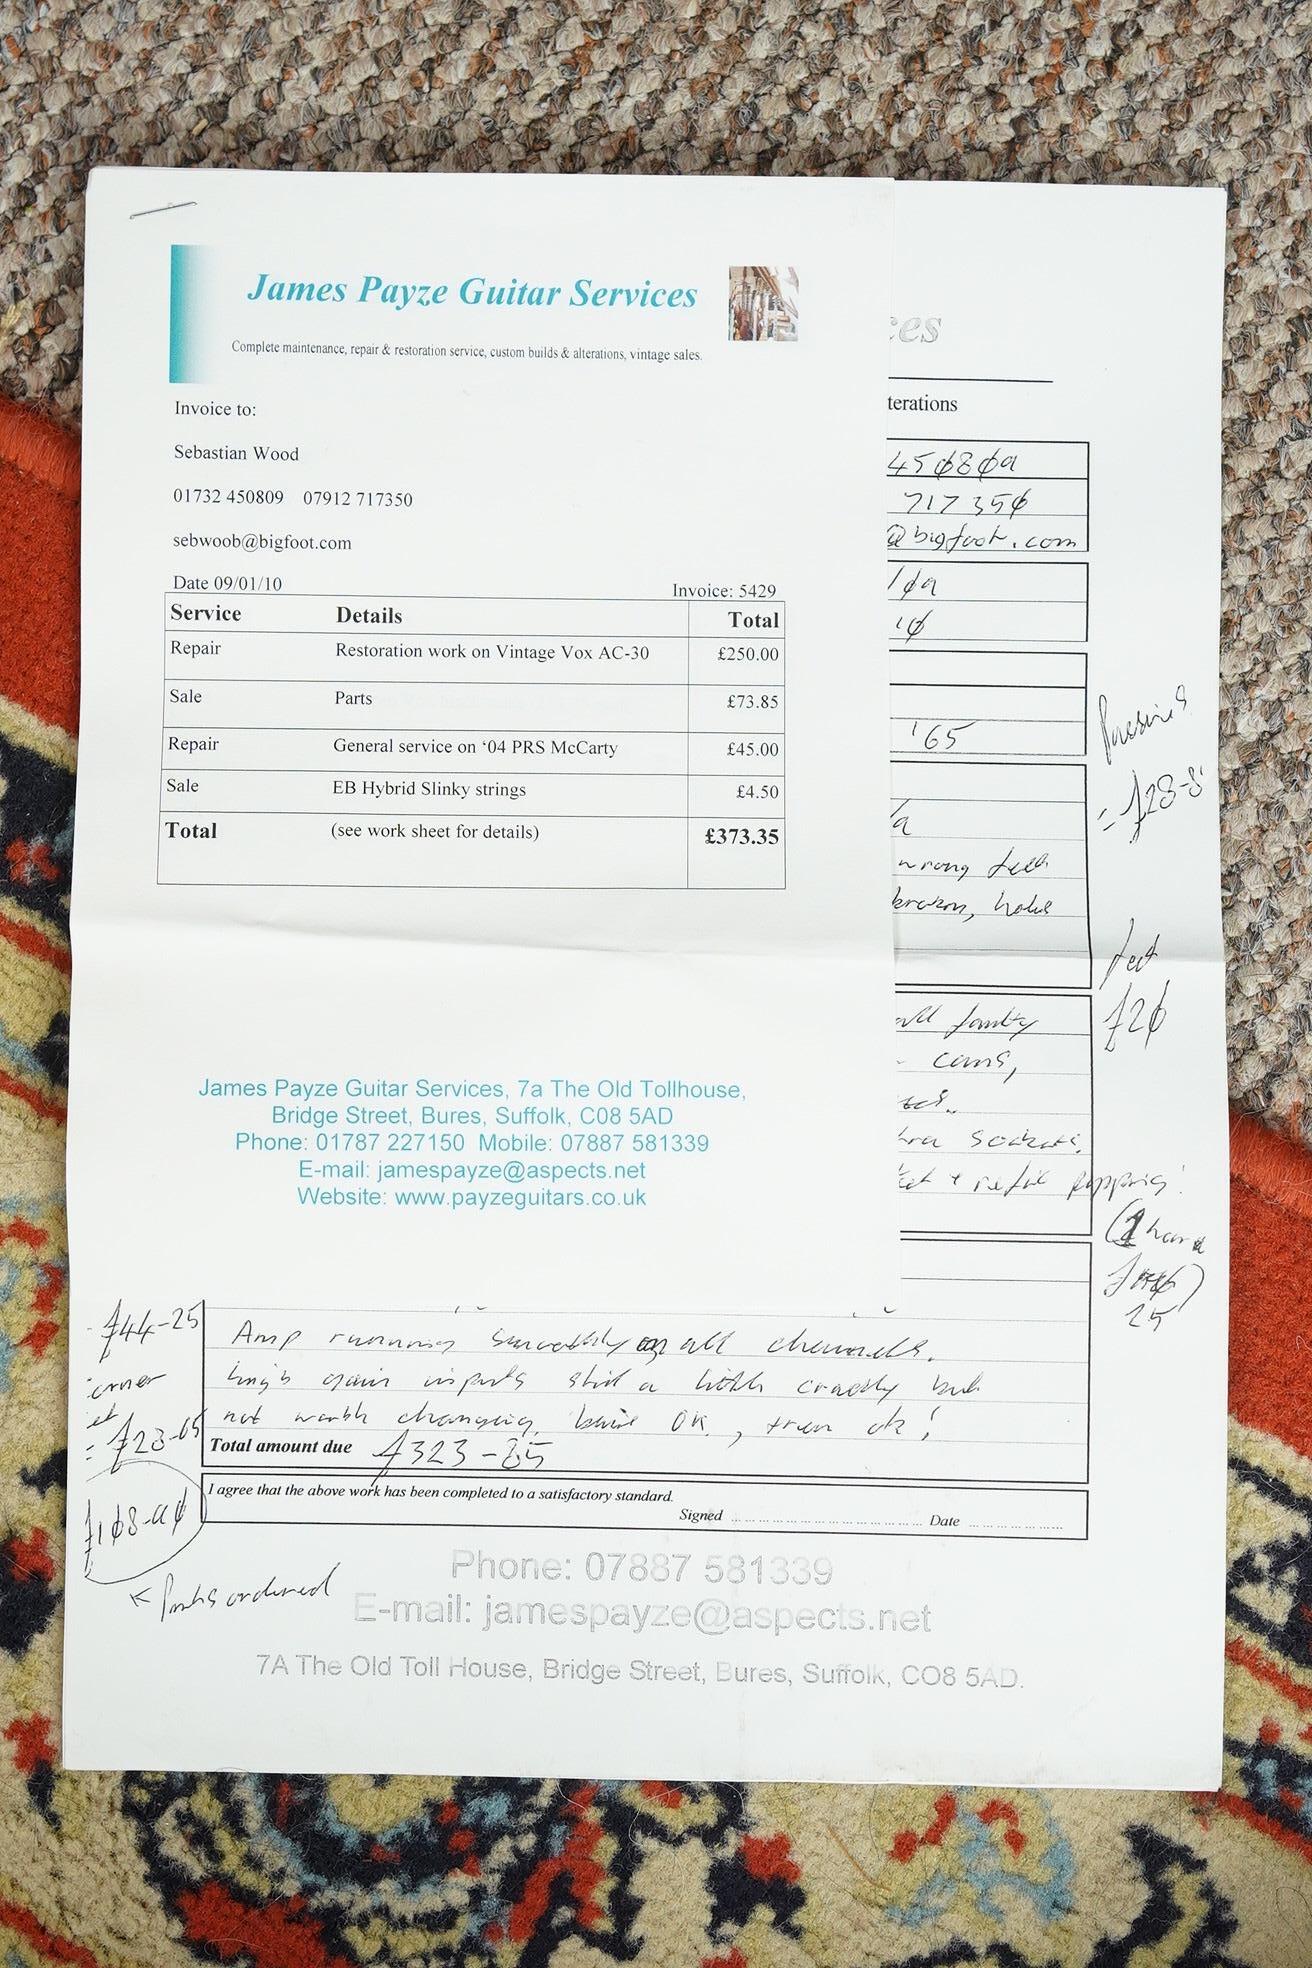 James Payze Guitar Services
Complete maintenance, repair & restoration service, custom builds & alterations, vintage sales.
Invoice to:
Sebastian Wood
01732 450809 07912 717350
sebwoob@bigfoot.com
Date 09/01/10 Invoice: 5429
Service Details Total
Repair Restoration work on Vintage Vox AC-30 £250.00
Sale Parts £73.85
Repair General service on ‘04 PRS McCarty £45.00
Sale EB Hybrid Slinky strings £4.50
Total (see work sheet for details) £373.35
James Payze Guitar Services, 7a The Old Tollhouse,
Bridge Street, Bures, Suffolk, C08 5AD
Phone: 01787 227150 Mobile: 07887 581339
E-mail: jamespayze@aspects.net
Website: www.payzeguitars.co.uk
ces
terations
450809
717350
@bigfoot.com
'65
wrong feet
holes
feet
£20
all faulty
cans,
sockets.
£44-25
Amp running smoothly on all channels.
high gain inputs still a little crackly but
not worth changing, OK, trem ok!
£23-65
Total amount due £323-85
I agree that the above work has been completed to a satisfactory standard.
Signed Date
Parts ordered
Phone: 07887 581339
E-mail: jamespayze@aspects.net
7A The Old Toll House, Bridge Street, Bures, Suffolk, CO8 5AD.